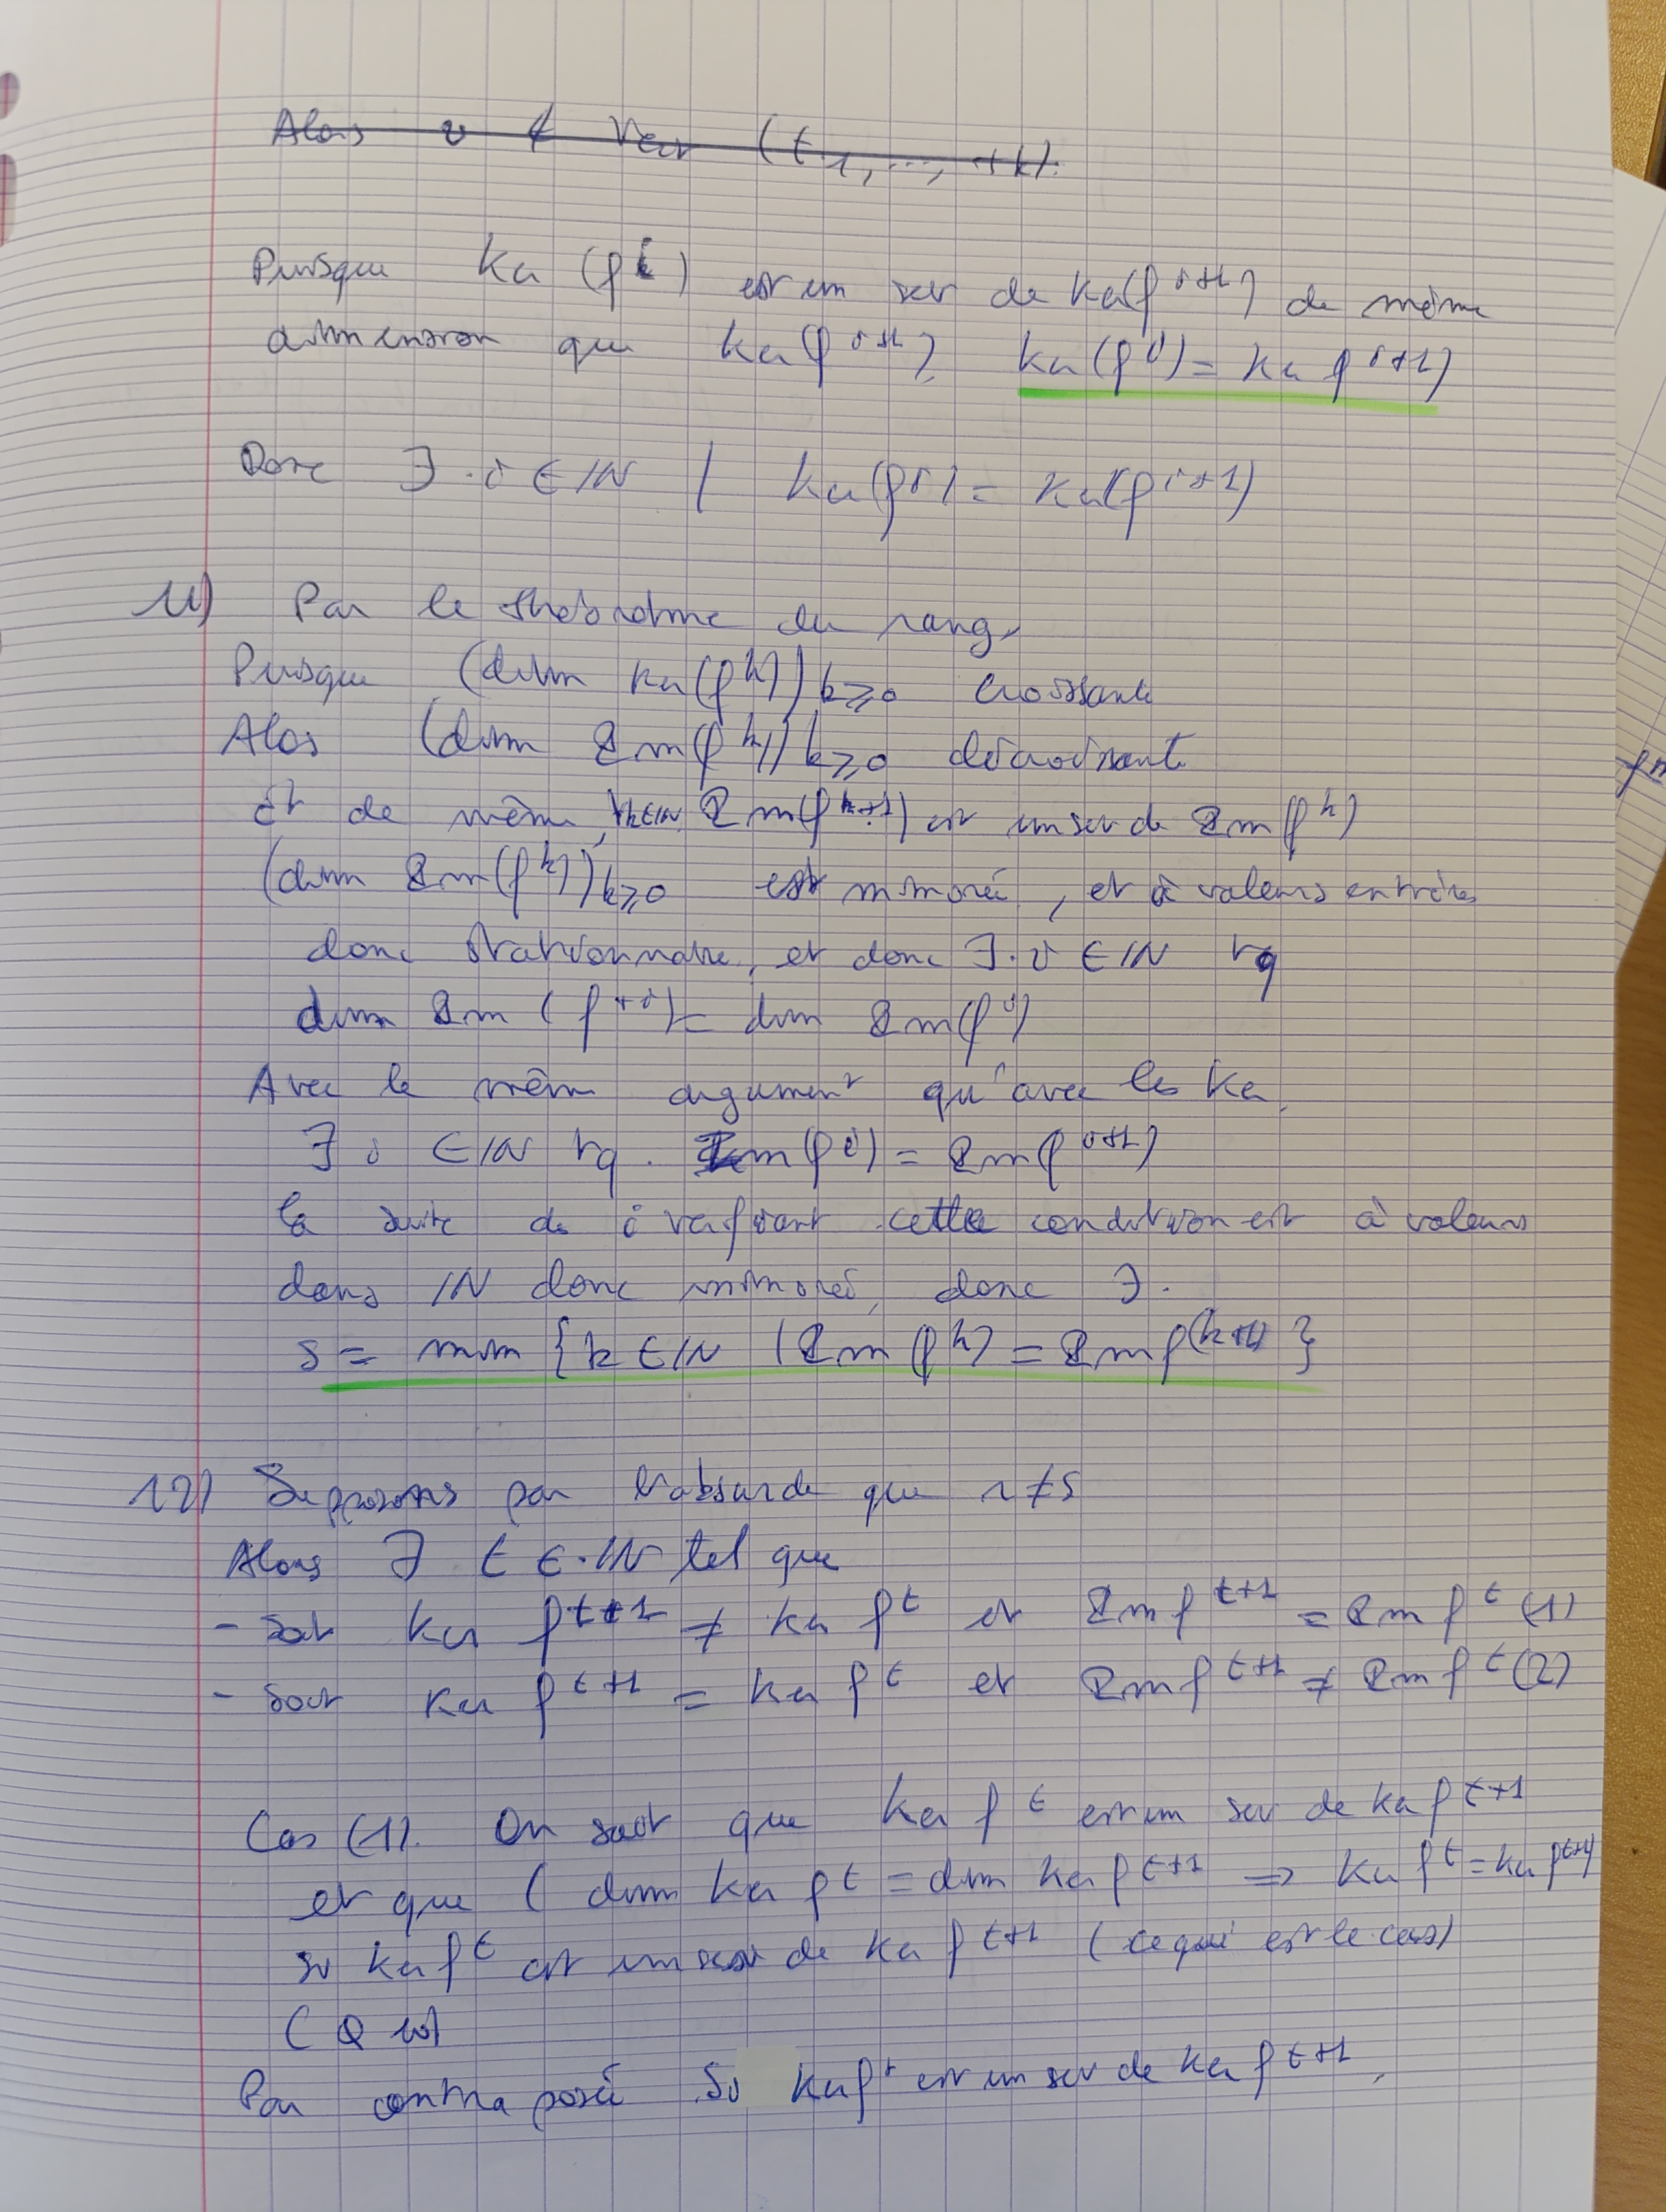 Alors v ∉ Vect (t1, ..., tk).
Puisque Ker (f^i) est un sev de Ker(f^{i+1}) de même
dimension que Ker(f^{i+1}), Ker(f^i) = Ker f^{i+1})
Donc ∃ i ∈ IN | Ker(f^i) = Ker(f^{i+1})
11) Par le théorème du rang,
Puisque (dim Ker(f^k))k≥0 croissante
Alos (dim Im(f^k))k≥0 décroissante
Et de même, ∀k∈IN Im(f^{k+1}) est un sev de Im(f^k)
(dim Im(f^k))k≥0 est minorée, et à valeurs entières
donc stationnaire, et donc ∃ i ∈ IN tq
dim Im (f^{+i}) = dim Im(f^i)
Avec le même argument qu'avec les Ker,
∃ i ∈ IN tq. Im(f^i) = Im(f^{i+1})
la suite de i verifiant cette condition est à valeurs
dans IN donc minorée, donc ∃.
s = min {k ∈ IN | Im f^k) = Im f^{(k+1)} }
12) Supposons par l'absurde que r ≠ s
Alors ∃ t ∈ IN tel que
- soit Ker f^{t+1} ≠ Ker f^t et Im f^{t+1} = Im f^t (1)
- soit Ker f^{t+1} = Ker f^t et Im f^{t+1} ≠ Im f^t (2)
Cas (1). On sait que Ker f^t est un sev de Ker f^{t+1}
et que ( dim Ker f^t = dim Ker f^{t+1} ⇒ Ker f^t = Ker f^{t+1})
si Ker f^t est un sev de Ker f^{t+1} (ce qui est le cas)
(Q 10)
Par contraposée Si Ker f^t est un sev de Ker f^{t+1},